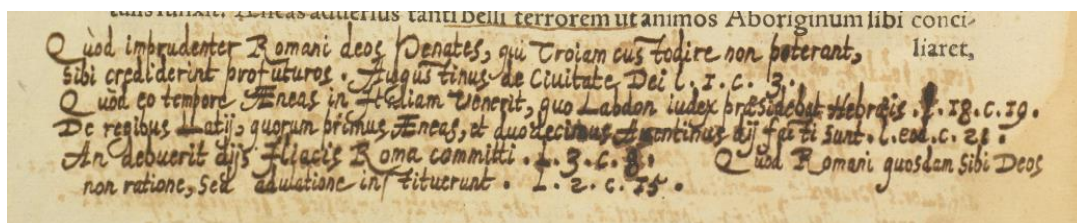 tanti belli terrorem ut animos Aboriginum sibi conci-
liaret,
Quòd imprudenter Romani deos Penates, qui Troiam custodire non poterant,
sibi crediderint profuturos. Augustinus de Ciuitate Dei l. 1. c. 3.
Quòd eo tempore Æneas in Italiam venerit, quo Labdon iudex præsidebat Hebræis. l. 18. c. 19.
De regibus Latij, quorum primus Æneas, et duodecimus Auentinus dij facti sunt. l. eod. c. 21.
An debuerit dijs Iliacis Roma committi. l. 3. c. 8. Quòd Romani quosdam sibi Deos
non ratione, sed adulatione instituerunt. l. 2. c. 15.